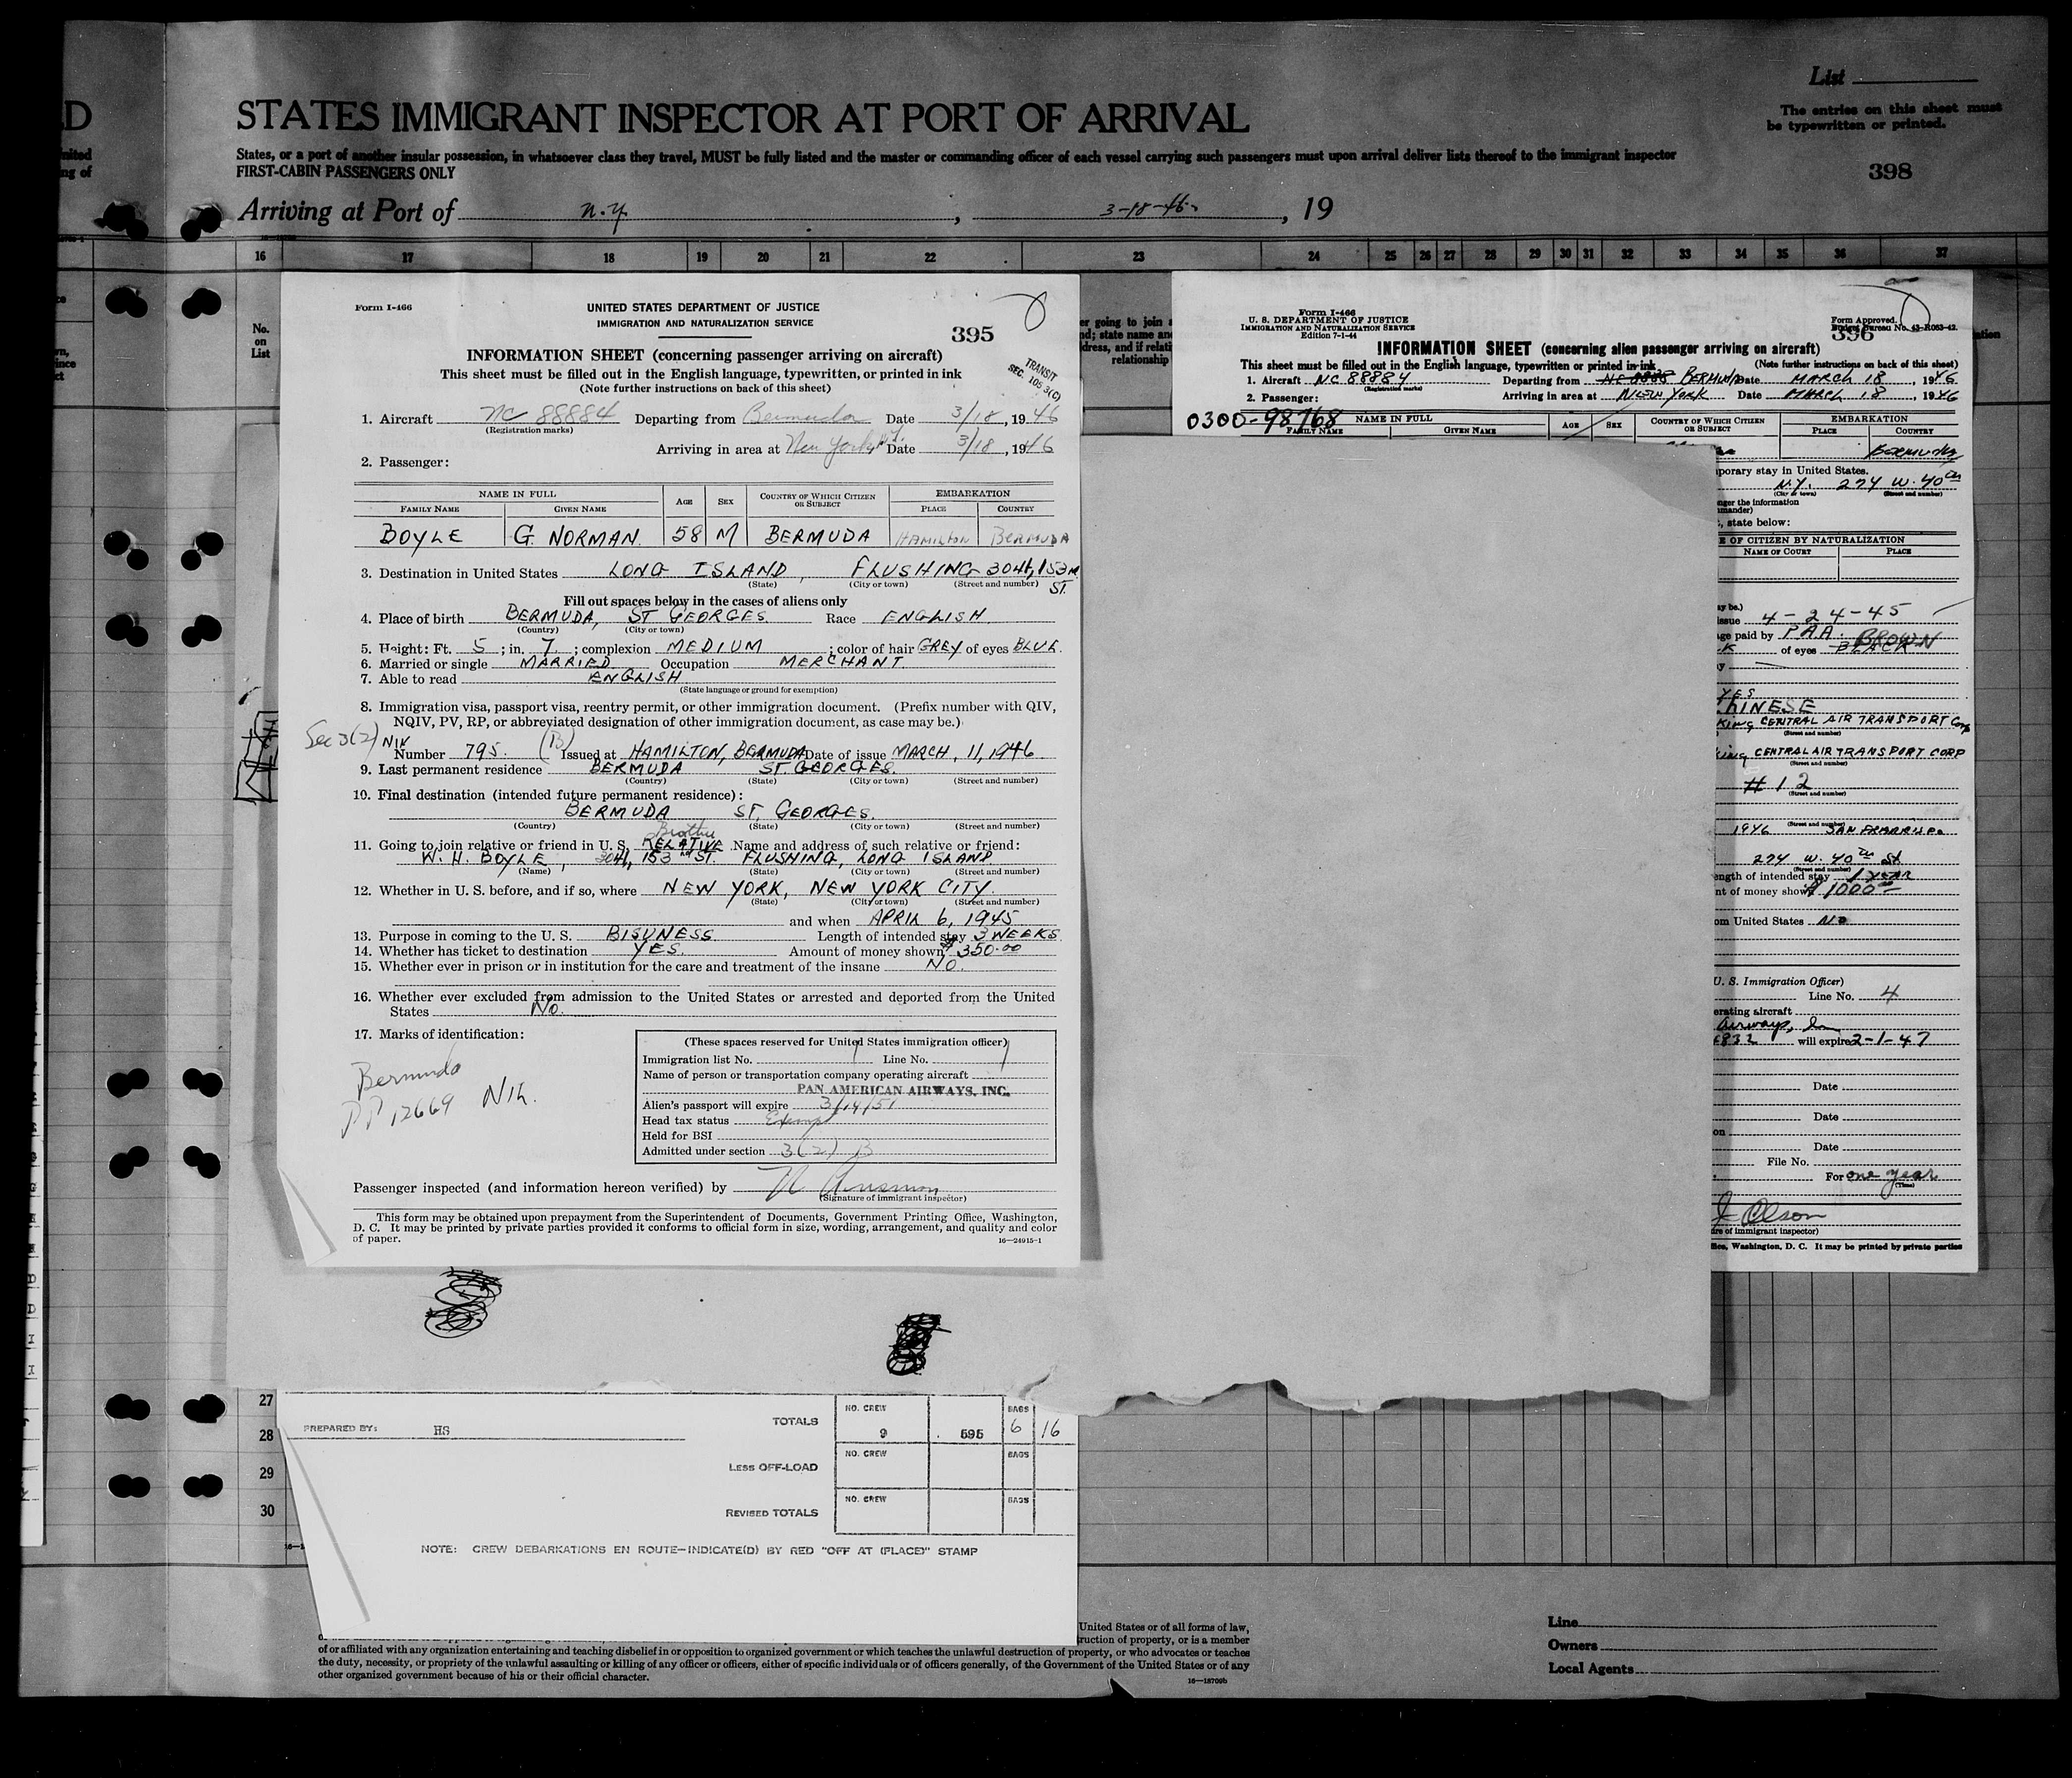 List
STATES IMMIGRANT INSPECTOR AT PORT OF ARRIVAL
The entries on this sheet must
be typewritten or printed.
States, or a port of another insular possession, in whatsoever class they travel, MUST be fully listed and the master or commanding officer of each vessel carrying such passengers must upon arrival deliver lists thereof to the immigrant inspector
FIRST-CABIN PASSENGERS ONLY
398
Arriving at Port of N.Y. , 3-18-46 , 19
16 17 18 19 20 21 22 23 24 25 26 27 28 29 30 31 32 33 34 35 36 37
No.
on
List
Form I-466
UNITED STATES DEPARTMENT OF JUSTICE
IMMIGRATION AND NATURALIZATION SERVICE
395
INFORMATION SHEET (concerning passenger arriving on aircraft)
This sheet must be filled out in the English language, typewritten, or printed in ink
(Note further instructions on back of this sheet)
TRANSIT
SEC. 105 3(C)
1. Aircraft NC 88884 Departing from Bermuda Date 3/18, 1946
(Registration marks)
Arriving in area at New York N.Y. Date 3/18, 1946
2. Passenger:
NAME IN FULL AGE SEX COUNTRY OF WHICH CITIZEN OR SUBJECT EMBARKATION
FAMILY NAME GIVEN NAME PLACE COUNTRY
BOYLE G. NORMAN. 58 M BERMUDA HAMILTON BERMUDA
3. Destination in United States LONG ISLAND, FLUSHING 3041, 153rd ST.
(State) (City or town) (Street and number)
Fill out spaces below in the cases of aliens only
4. Place of birth BERMUDA, ST GEORGES. Race ENGLISH
(Country) (City or town)
5. Height: Ft. 5 ; in. 7 ; complexion MEDIUM ; color of hair GREY of eyes BLUE.
6. Married or single MARRIED. Occupation MERCHANT.
7. Able to read ENGLISH
(State language or ground for exemption)
8. Immigration visa, passport visa, reentry permit, or other immigration document. (Prefix number with QIV,
NQIV, PV, RP, or abbreviated designation of other immigration document, as case may be.)
Sec 3(2) NIV (B)
Number 795. Issued at HAMILTON, BERMUDA Date of issue MARCH, 11, 1946
9. Last permanent residence BERMUDA ST. GEORGES.
(Country) (State) (City or town) (Street and number)
10. Final destination (intended future permanent residence):
BERMUDA ST. GEORGES.
(Country) (State) (City or town) (Street and number)
Brother
11. Going to join relative or friend in U.S. RELATIVE Name and address of such relative or friend:
W. H. BOYLE, 3041, 153rd ST. FLUSHING, LONG ISLAND
(Name) (State) (City or town) (Street and number)
12. Whether in U. S. before, and if so, where NEW YORK, NEW YORK CITY.
(State) (City or town) (Street and number)
and when APRIL 6, 1945
13. Purpose in coming to the U. S. BISUNESS. Length of intended stay 3 WEEKS.
14. Whether has ticket to destination YES. Amount of money shown $350.00
15. Whether ever in prison or in institution for the care and treatment of the insane NO.
16. Whether ever excluded from admission to the United States or arrested and deported from the United
States No.
17. Marks of identification:
Bermuda
PP 12669 NIV.
(These spaces reserved for United States immigration officer)
Immigration list No. 1 Line No. 1
Name of person or transportation company operating aircraft
PAN AMERICAN AIRWAYS, INC.
Alien's passport will expire 3/14/51
Head tax status Exempt
Held for BSI
Admitted under section 3(2) B
Passenger inspected (and information hereon verified) by
(Signature of immigrant inspector)
This form may be obtained upon prepayment from the Superintendent of Documents, Government Printing Office, Washington,
D. C. It may be printed by private parties provided it conforms to official form in size, wording, arrangement, and quality and color
of paper.
16—24915-1
Form I-466
U. S. DEPARTMENT OF JUSTICE
IMMIGRATION AND NATURALIZATION SERVICE
Edition 7-1-44
Form Approved.
Budget Bureau No. 43-R063-42.
396
INFORMATION SHEET (concerning alien passenger arriving on aircraft)
This sheet must be filled out in the English language, typewritten or printed in ink. (Note further instructions on back of sheet)
1. Aircraft NC 88884 Departing from BERMUDA Date MARCH 18, 1946
(Registration marks)
2. Passenger: Arriving in area at NEW YORK Date MARCH 18, 1946
0300-98768
NAME IN FULL AGE SEX COUNTRY OF WHICH CITIZEN OR SUBJECT EMBARKATION
FAMILY NAME GIVEN NAME PLACE COUNTRY
BERMUDA
porary stay in United States.
N.Y. 274 W. 40th
(City or town) (Street and number)
nger the information
mander)
, state below:
E OF CITIZEN BY NATURALIZATION
NAME OF COURT PLACE
ay be.)
issue 4-24-45
ge paid by PAA.
K of eyes BLACK BROWN
YES
CHINESE
King CENTRAL AIR TRANSPORT Corp
(Street and number)
King CENTRAL AIR TRANSPORT CORP
(Street and number)
#12
(Street and number)
1946 SAN FRANCISCO
(Street and number)
274 W. 40th St
(Street and number)
ength of intended stay 1 YEAR
nt of money shown $1000.00
om United States No
U. S. Immigration Officer)
Line No. 4
erating aircraft
Airways, In
6832 will expire 2-1-47
Date
Date
on
Date
File No.
For one year
(Time)
J Olson
re of immigrant inspector)
fice, Washington, D. C. It may be printed by private parties
27
28
29
30
PREPARED BY: HS
TOTALS NO. CREW 9 595 BAGS 6 16
LESS OFF-LOAD NO. CREW BAGS
REVISED TOTALS NO. CREW BAGS
NOTE: CREW DEBARKATIONS EN ROUTE—INDICATE(D) BY RED "OFF AT (PLACE)" STAMP
United States or of all forms of law,
ruction of property, or is a member
of or affiliated with any organization entertaining and teaching disbelief in or opposition to organized government or which teaches the unlawful destruction of property, or who advocates or teaches
the duty, necessity, or propriety of the unlawful assaulting or killing of any officer or officers, either of specific individuals or of officers generally, of the Government of the United States or of any
other organized government because of his or their official character.
16—18709b
Line
Owners
Local Agents